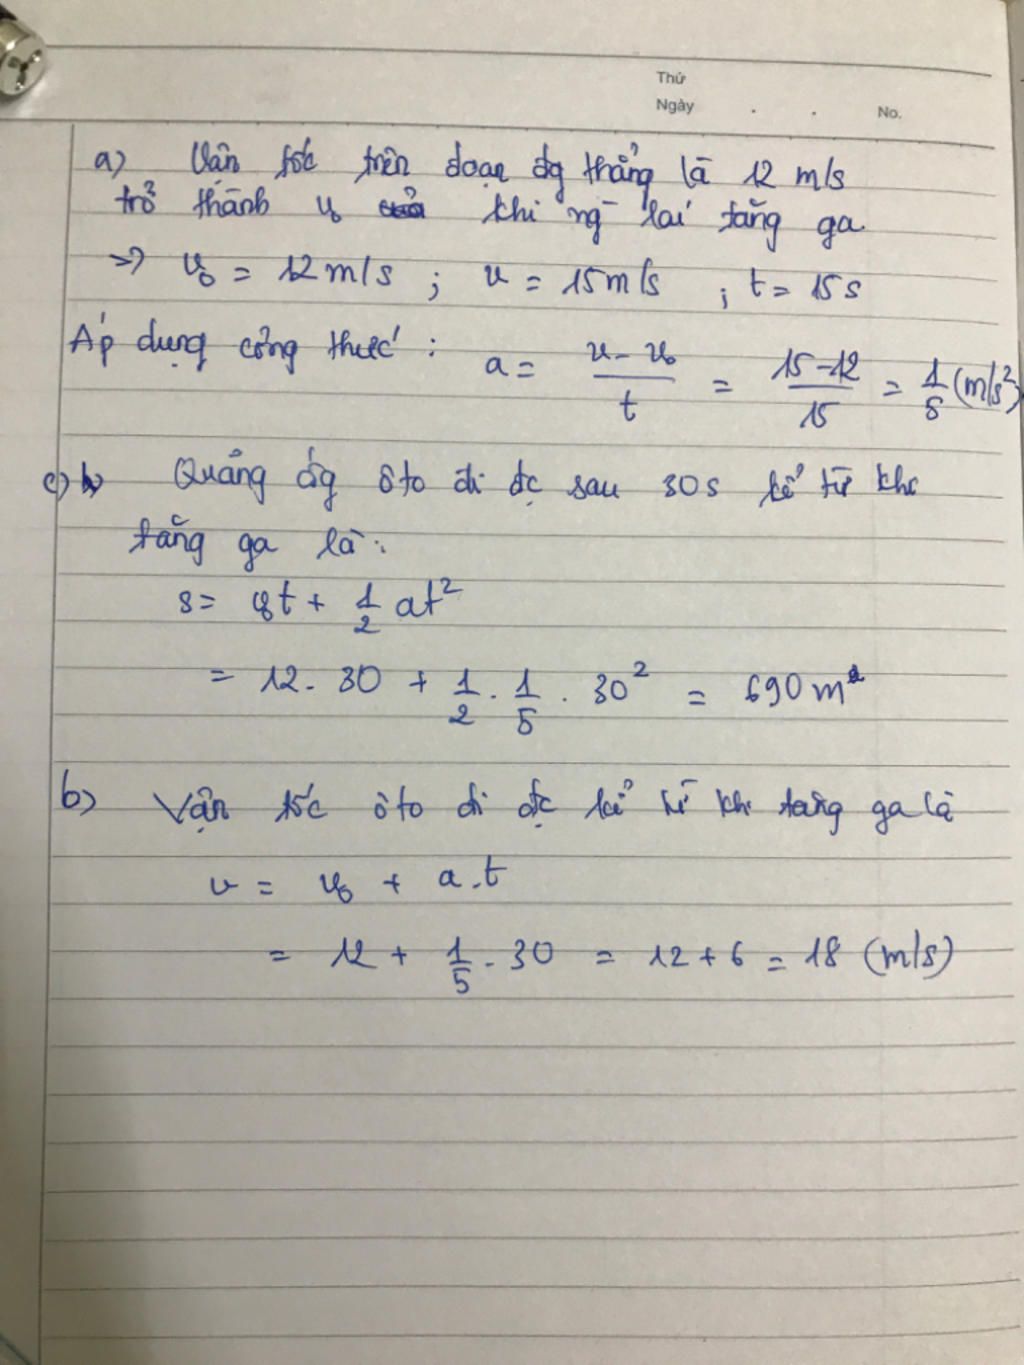 Thứ
Ngày . . No.
a) Vận tốc trên đoạn đg thẳng là 12 m/s
trở thành v₀ khi ng lái tăng ga
=> v₀ = 12 m/s ; v = 15 m/s ; t = 15 s
Áp dụng công thức : a = (v - v₀)/t = (15 - 12)/15 = 1/5 (m/s²)
c) Quãng đg ôto đi đc sau 30s kể từ khi
tăng ga là :
s = v₀t + 1/2 at²
= 12 . 30 + 1/2 . 1/5 . 30² = 690 m
b) Vận tốc ôto đi đc kể từ khi tăng ga là
v = v₀ + a.t
= 12 + 1/5 . 30 = 12 + 6 = 18 (m/s)